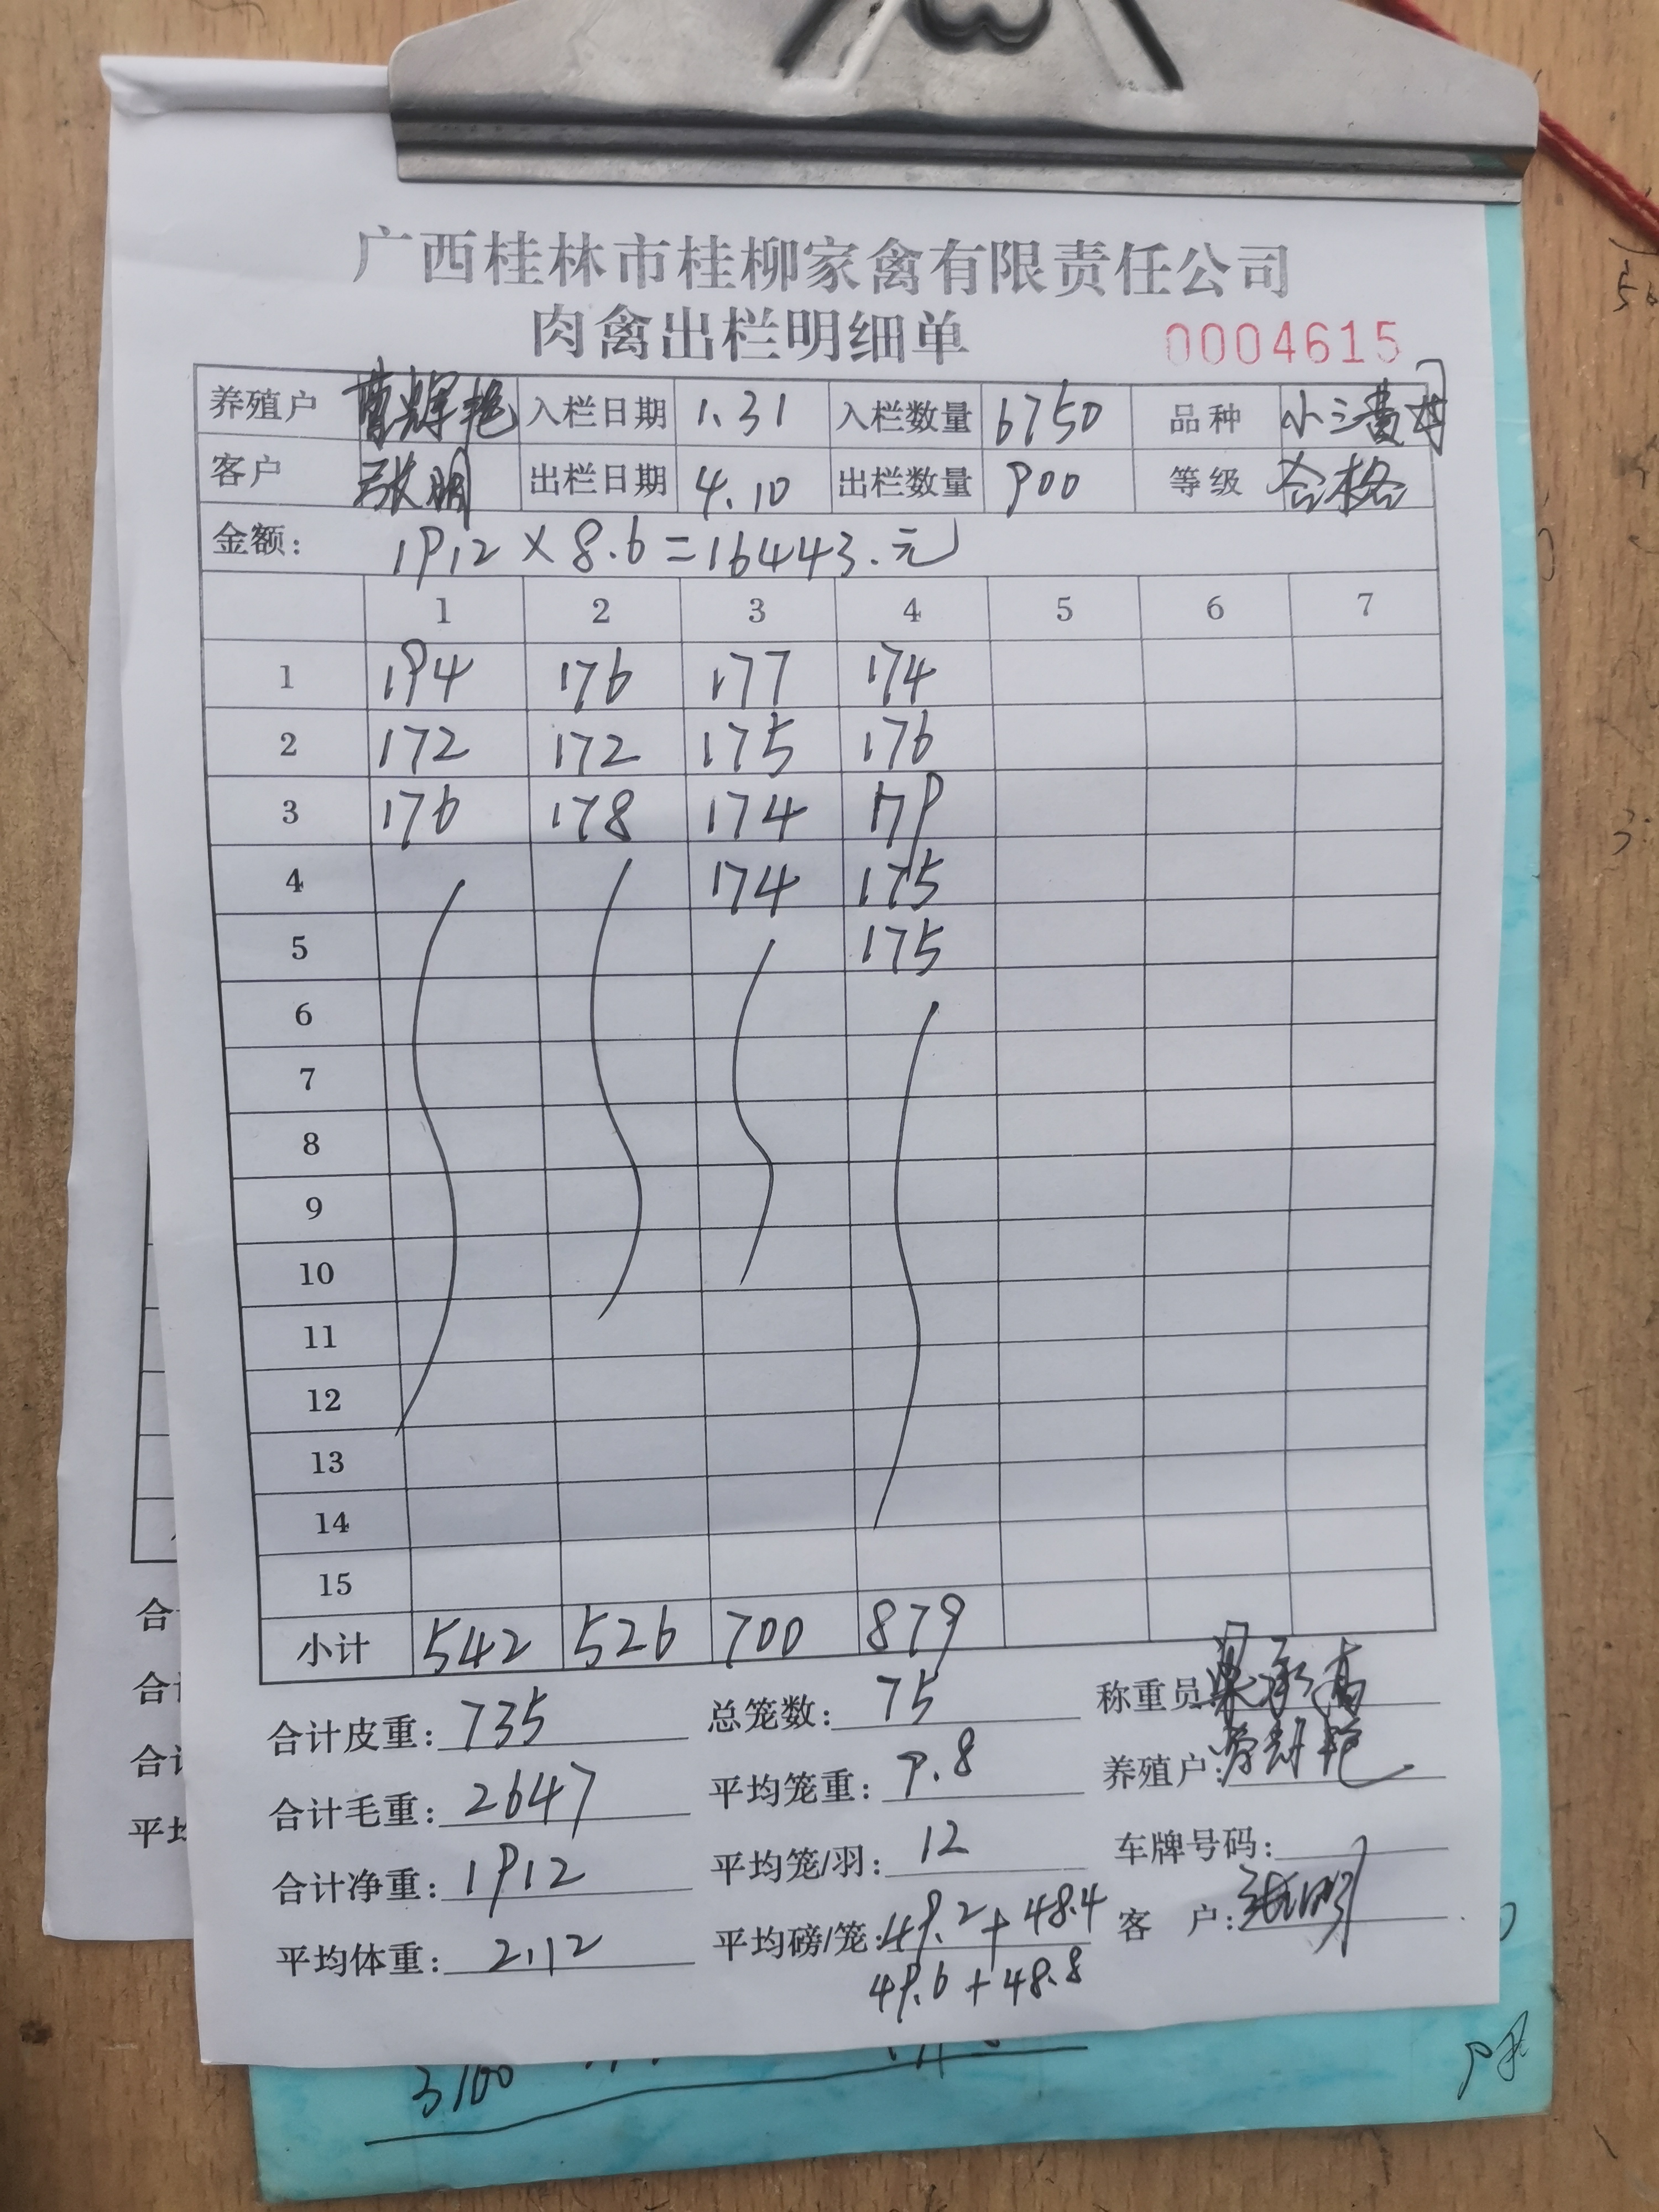 广西桂林市桂柳家禽有限责任公司
肉禽出栏明细单 0004615
养殖户 曹辉艳 入栏日期 1.31 入栏数量 6750 品种 小三黄母
客户 张明 出栏日期 4.10 出栏数量 900 等级 合格
金额: 1912×8.6=16443.元
1 2 3 4 5 6 7
1 194 176 177 174
2 172 172 175 176
3 176 178 174 179
4 174 175
5 175
6
7
8
9
10
11
12
13
14
15
小计 542 526 700 879
合计皮重: 735 总笼数: 75 称重员
合计毛重: 2647 平均笼重: 9.8 养殖户:
合计净重: 1912 平均笼/羽: 12 车牌号码:
平均体重: 2.12 平均磅/笼: 49.2+48.4 客 户: 张明
49.6+48.8
合
合
合
平均
3100